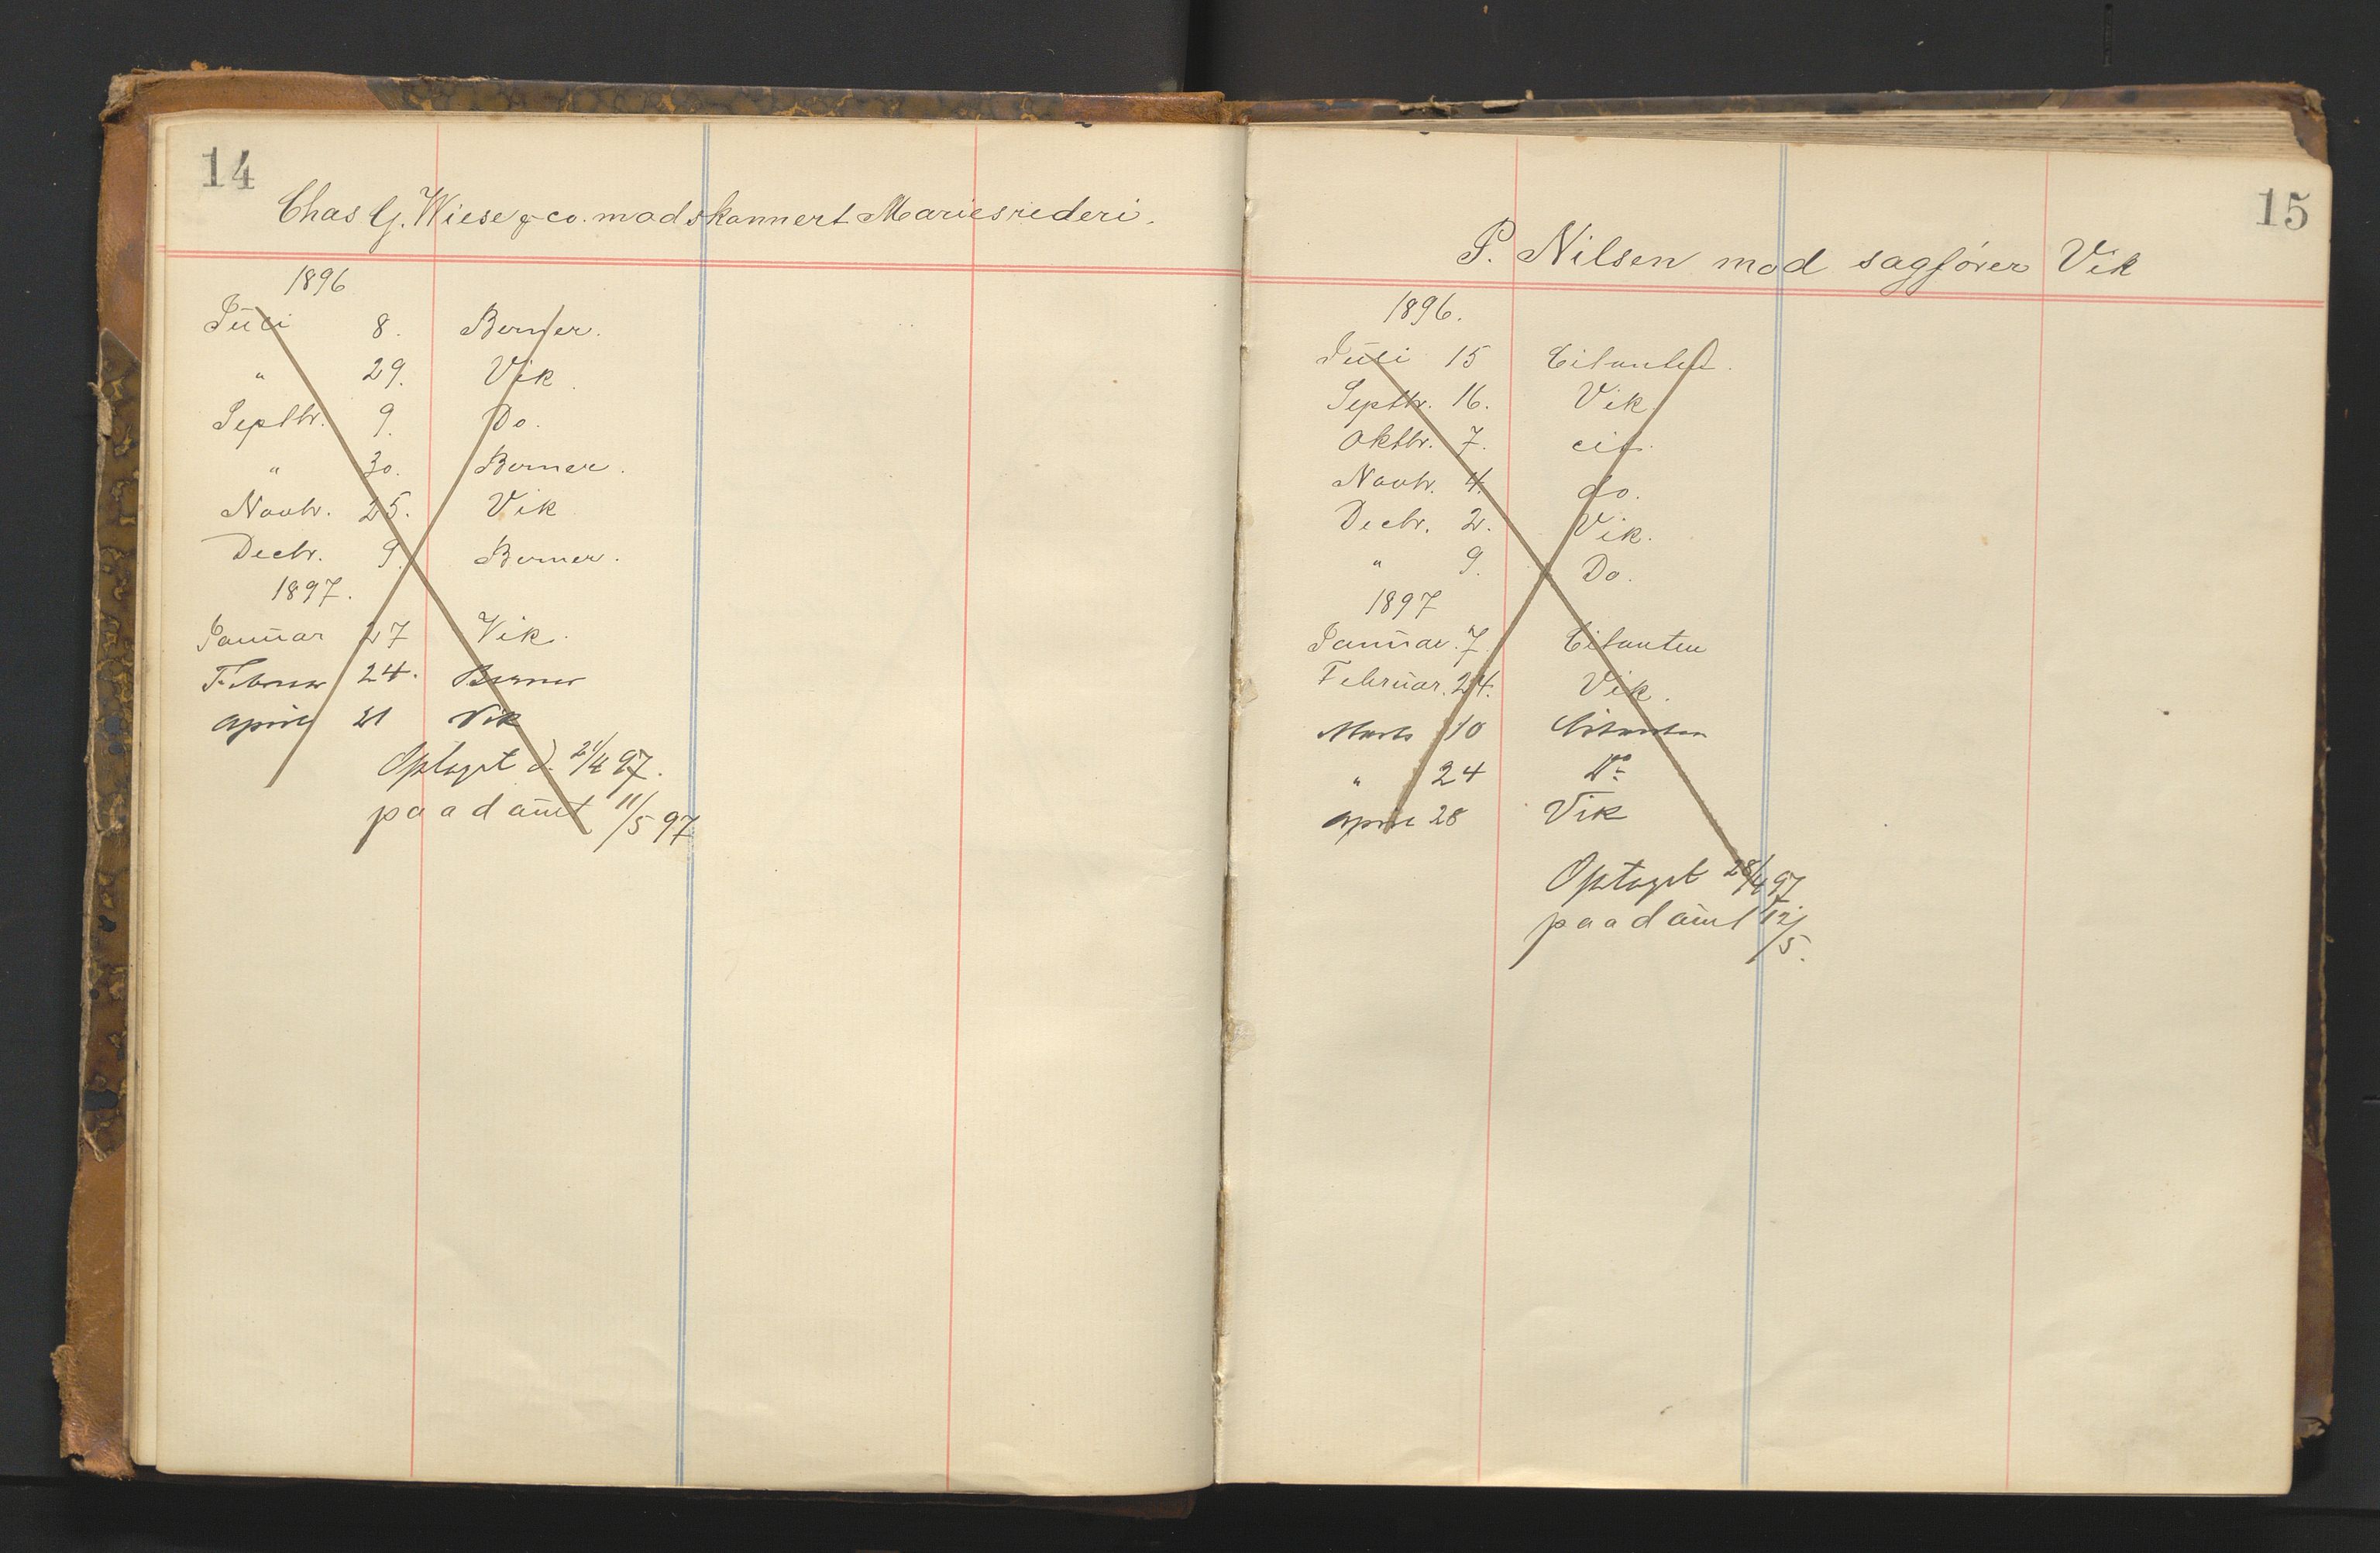 14
Chas G. Wiese & co. mod skonnert Maries rederi.
1896
Juli 8. Berner.
" 29. Vik.
Septbr. 9. Do.
" 30. Berner.
Novbr. 25. Vik
Decbr. 9. Berner.
1897.
Januar 27 Vik.
Februar 24. Berner
April 21 Vik
Optaget d. 21/4 97.
paadömt 11/5 97
15
P. Nilsen mod sagfører Vik
1896.
Juli 15 Citanten.
Septbr. 16. Vik
Oktbr. 7. cit.
Novbr. 4. do.
Decbr. 2. Vik.
" 9. Do.
1897
Januar. 7. Citanten
Februar. 24. Vik.
Marts 10 Citanten
" 24 Do
April 28 Vik
Optaget 28/4 97
paadömt 12/5.